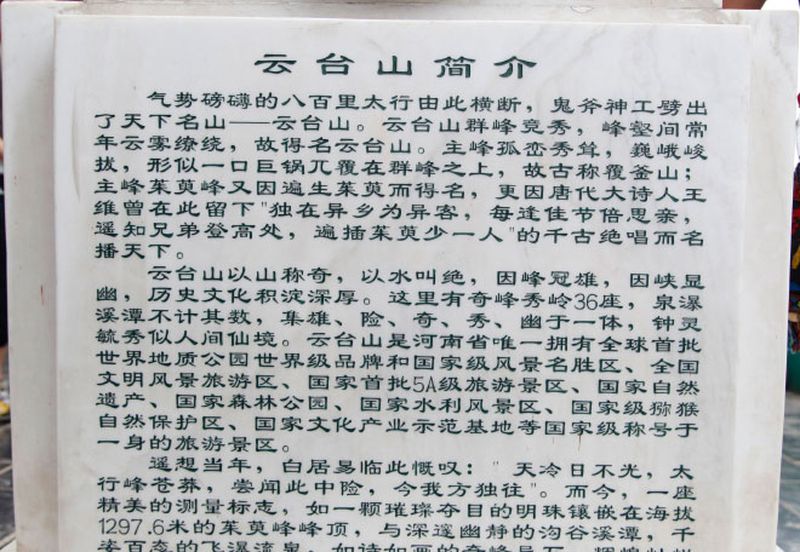 云台山简介
气势磅礴的八百里太行由此横断，鬼斧神工劈出
了天下名山——云台山。云台山群峰竞秀，峰壑间常
年云雾缭绕，故得名云台山。主峰孤峦秀耸，巍峨峻
拔，形似一口巨锅兀覆在群峰之上，故古称覆釜山；
主峰茱萸峰又因遍生茱萸而得名，更因唐代大诗人王
维曾在此留下"独在异乡为异客，每逢佳节倍思亲，
遥知兄弟登高处，遍插茱萸少一人"的千古绝唱而名
播天下。
云台山以山称奇，以水叫绝，因峰冠雄，因峡显
幽，历史文化积淀深厚。这里有奇峰秀岭36座，泉瀑
溪潭不计其数，集雄、险、奇、秀、幽于一体，钟灵
毓秀似人间仙境。云台山是河南省唯一拥有全球首批
世界地质公园世界级品牌和国家级风景名胜区、全国
文明风景旅游区、国家首批5A级旅游景区、国家自然
遗产、国家森林公园、国家水利风景区、国家级猕猴
自然保护区、国家文化产业示范基地等国家级称号于
一身的旅游景区。
遥想当年，白居易临此慨叹："天冷日不光，太
行峰苍莽，尝闻此中险，今我方独往"。而今，一座
精美的测量标志，如一颗璀璨夺目的明珠镶嵌在海拔
1297.6米的茱萸峰峰顶，与深邃幽静的沟谷溪潭，千
姿百态的飞瀑流泉，如诗如画的奇峰异石，